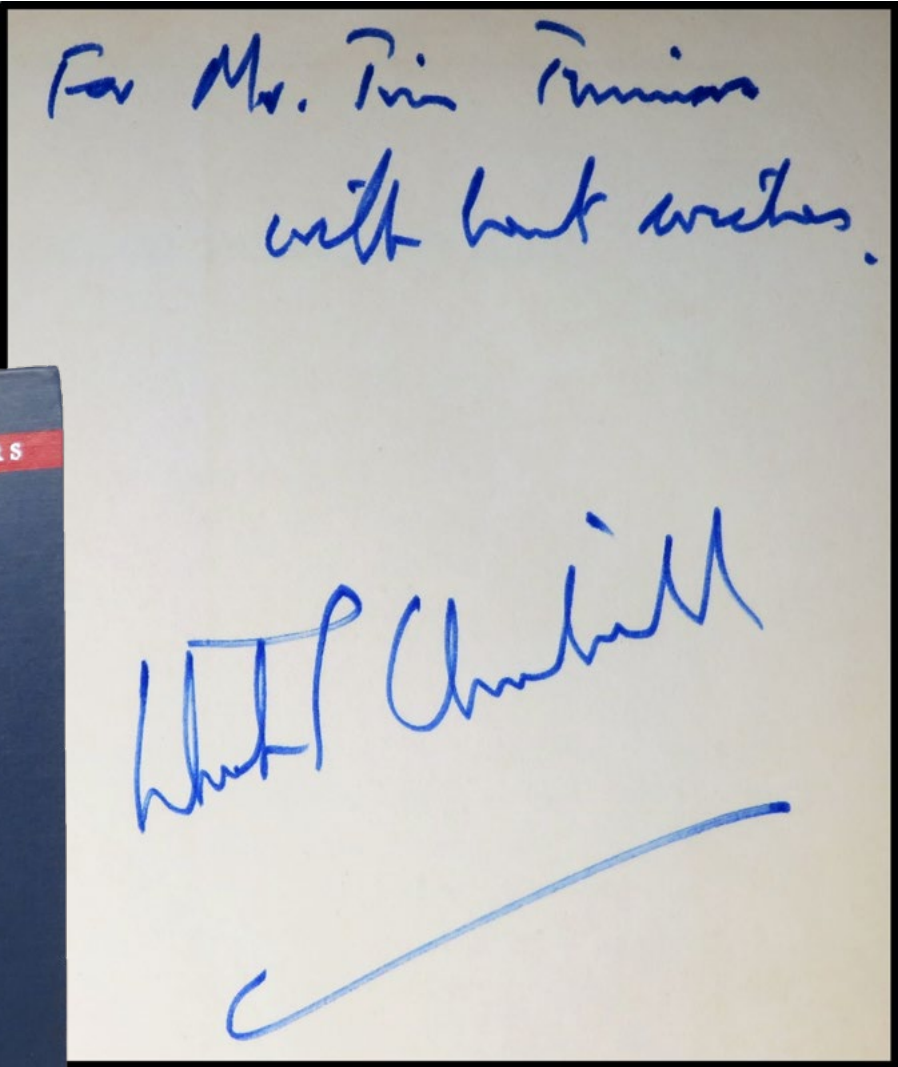 For Mr. Tim Timmins
with best wishes.
RS
Winston S Churchill